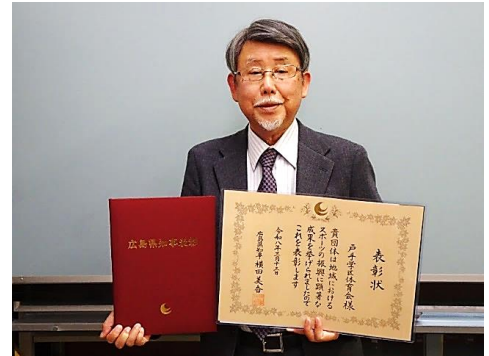 広島県知事表彰
表彰状
戸手学区体育会様
貴団体は地域における
スポーツの振興に顕著な
成果を挙げられましたので
これを表彰します
令和八年二月十三日
広島県知事横田美香